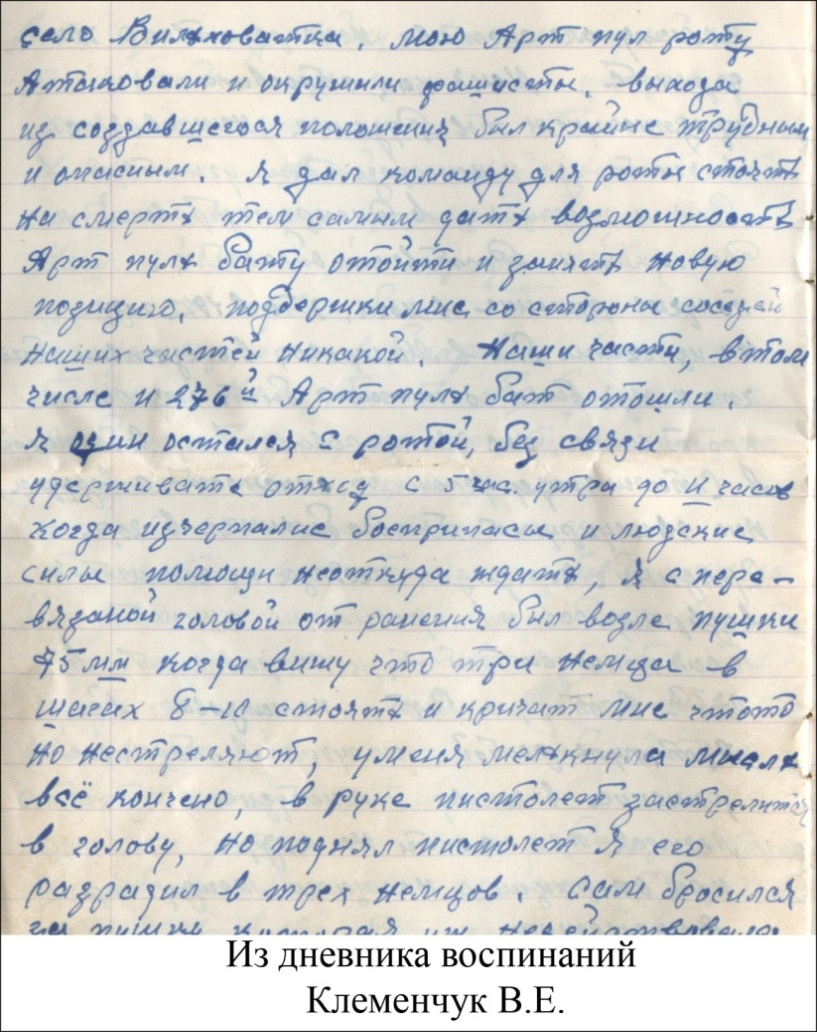 село Вильховатка, мою Арт пул роту
Атаковали и окружили фашисты, выхода
из создавшегося положения был крайне трудным
и опасным. Я дал команду для роты стоять
на смерть тем самым дать возможность
Арт пуль бату отойти и занять новую
позицию, поддержки мне со стороны соседей
наших частей никакой. Наши части, в том
числе и 276й Арт пуль бат отошли.
Я один остался с ротой, без связи
удерживать отход с 5 час. утра до 11 часов
когда изчерпались боеприпасы и людские
силы помощи неоткуда ждать, я с пере-
вязаной головой от ранения был возле пушки
75 мм когда вижу что три немца в
шагах 8-10 стоять и кричат мне чтото
но нестреляют, у меня мелькнула мысль
всё кончено, в руке пистолет застрелится
в голову, но поднял пистолет я его
разрадил в трех немцов. Сам бросился
за пушку которая уж недействовала
Из дневника воспинаний
Клеменчук В.Е.